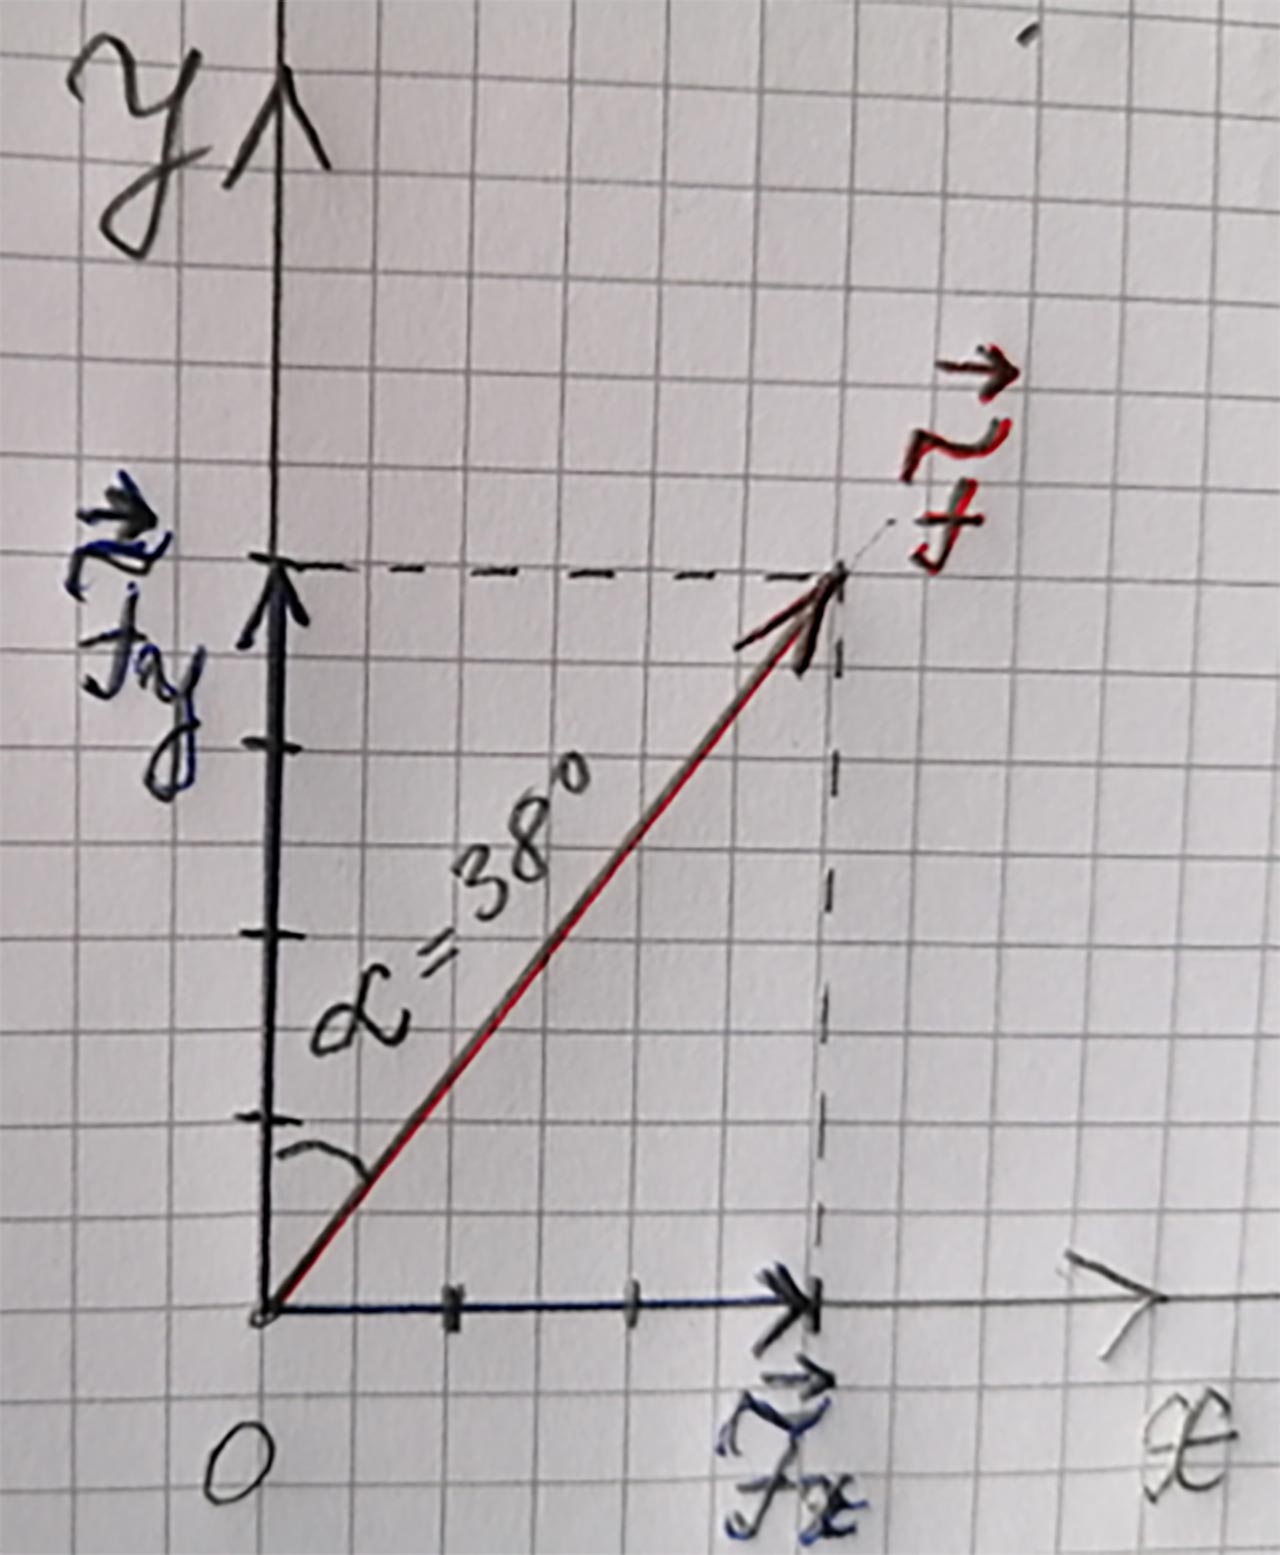 y
F⃗
F⃗y
α = 38°
0
F⃗x
x